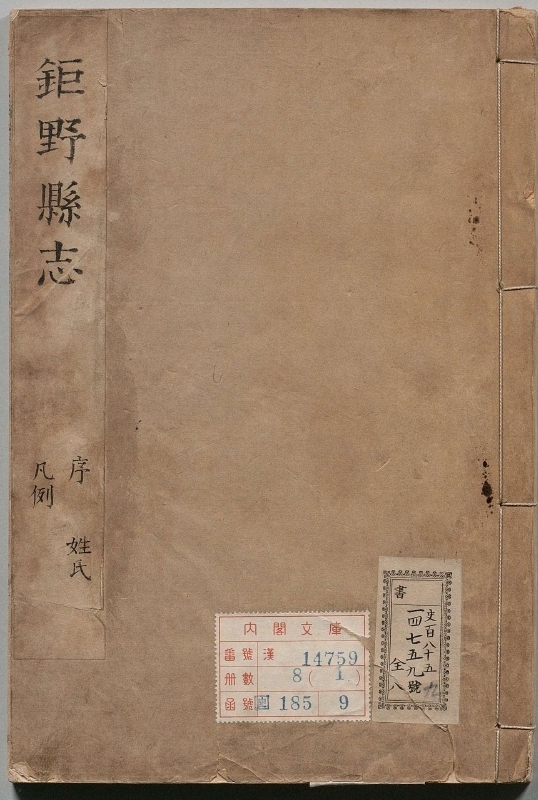 鉅野縣志
序 姓氏
凡例
內閣文庫
番號 漢 14759
册數 8(1)
函號 185 9
書
史百八十五
一四七五九號
全八